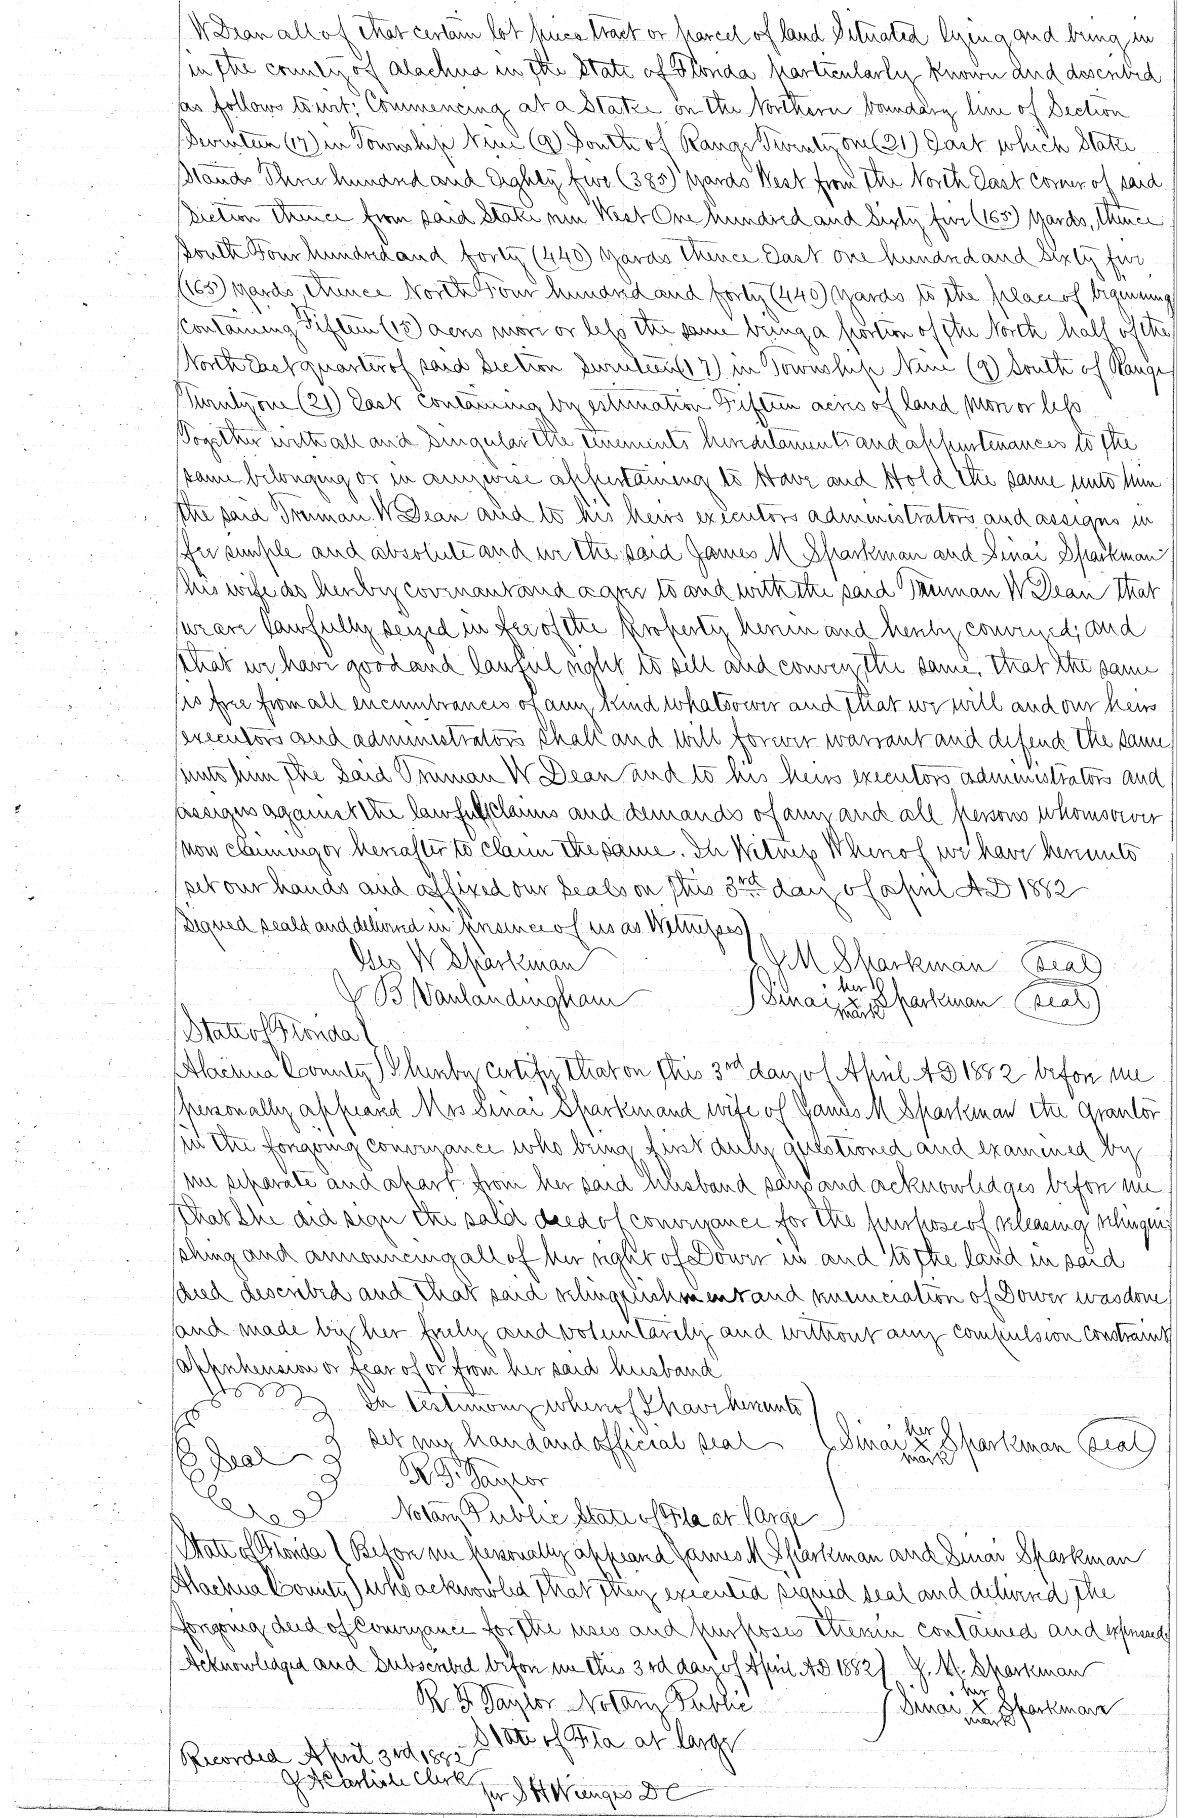 W Dean all of that certain lot piece tract or parcel of land Situated lying and being in
in the county of Alachua in the State of Florida particularly known and described
as follows towit; Commencing at a Stake on the Northern boundary line of Section
Seventeen (17) in Township Nine (9) South of Range Twenty one (21) East which Stake
Stands Three hundred and Eighty five (385) Yards West from the North East Corner of said
Section thence from said Stake run West One hundred and Sixty five (165) Yards, thence
South Four hundred and forty (440) Yards thence East one hundred and Sixty five
(165) Yards, thence North Four hundred and forty (440) Yards to the place of beginning
Containing Fifteen (15) acres more or less the same being a portion of the North half of the
North East quarter of said Section Seventeen (17) in Township Nine (9) South of Range
Twenty one (21) East containing by estimation Fifteen acres of land more or less
Together with all and Singular the tenements hereditaments and appurtenances to the
same belonging or in anywise appertaining to Have and Hold the same unto him
the said Truman W Dean and to his heirs executors administrators and assigns in
fee simple and absolute and we the said James M Sparkman and Sinai Sparkman
his wife do hereby covenant and agree to and with the said Truman W Dean that
we are lawfully seized in fee of the property herein and hereby conveyed; and
that we have good and lawful right to sell and convey the same. that the same
is free from all encumbrances of any kind whatsoever and that we will and our heirs
executors and administrators shall and will forever warrant and defend the same
unto him the Said Truman W Dean and to his heirs executors administrators and
assigns against the lawful claims and demands of any and all persons whomsoever
now claiming or hereafter to claim the same. In Witness Whereof we have hereunto
set our hands and affixed our Seals on this 3rd day of April A D 1882
Signed seald and delivered in presence of us as Witnesses
Geo W Sparkman J M Sparkman (seal)
J B Vanlandingham Sinai her x mark Sparkman (seal)
State of Florida
Alachua County) I hereby certify that on this 3rd day of April A D 1882 before me
personally appeared Mrs Sinai Sparkmand wife of James M Sparkman the Grantor
in the forgoing conveyance who being first duly questioned and examined by
me separate and apart from her said husband says and acknowledges before me
that She did sign the said deed of conveyance for the purpose of releasing relinqui
shing and announcing all of her right of Dower in and to the land in said
deed described and that said relinquishment and renunciation of Dower was done
and made by her freely and voluntarely and without any compulsion constraint
apprehension or fear of or from her said husband
In testimony whereof I have hereunto
set my hand and official seal Sinai her x mark Sparkman (seal)
Seal
R. F. Taylor
Notary Public State of Fla at large
State of Florida ( Before me personally appeard James M Sparkman and Sinai Sparkman
Alachua County) who acknowled that they executed signed seal and delivered the
forgoing deed of Conveyance for the uses and purposes therein contained and expressed
Acknowledged and Subscribed before me this 3rd day of April A D 1882) J. M. Sparkman
R. F. Taylor Notary Public Sinai her x mark Sparkman
State of Fla at large
Recorded April 3rd 1882
J A Carlisle Clerk
per S H Wienges D C